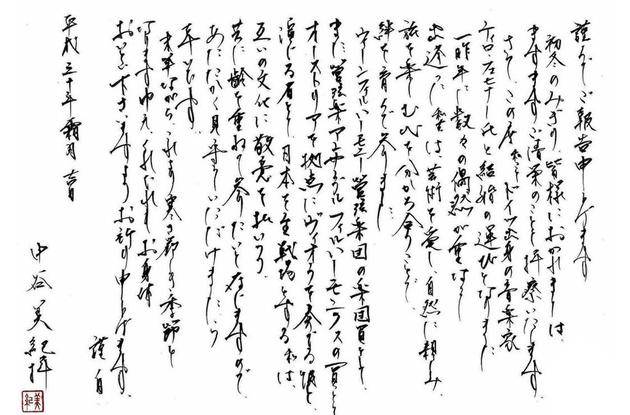 謹んでご報告申し上げます
初冬のみぎり、皆様におかれましては、
ますますご清栄のことと拝察いたします。
さて、この度私ことドイツ出身の音楽家
ティロ・フェヒナー氏と結婚の運びとなりました
一昨年に数々の偶然が重なって
出逢った私達は、芸術を愛し、自然に親しみ、
旅を楽しむ心を分かち合うことで
絆を育んで参りました。
ウィーンフィルハーモニー管弦楽団の楽団員として
また管弦楽アンサンブルフィルハーモニクスの一員として
オーストリアを拠点にヴィオラを奏でる彼と
演じる者として日本を主戦場とする私は、
互いの文化に敬意を払いつつ
共に齢を重ねて参りたいと存じますので
あたたかく見守っていただけましたら
幸いです。
末筆ながら、これより寒さ厳しき季節と
なりますゆえ くれぐれもお身体
おいとい下さいますようお祈り申し上げます。
謹白
平成三十年霜月吉日
中谷美紀拝
美紀